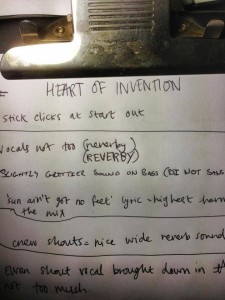 HEART OF INVENTION
stick clicks at start out
vocals not too (neverby)
(REVERBY)
SLIGHTLY GRITTIER SOUND ON BASS (DI NOT
ain't got no feet' lyric - highest
the mix
crew shouts = nice wide reverb sound
shout vocal brought down in
not too much.